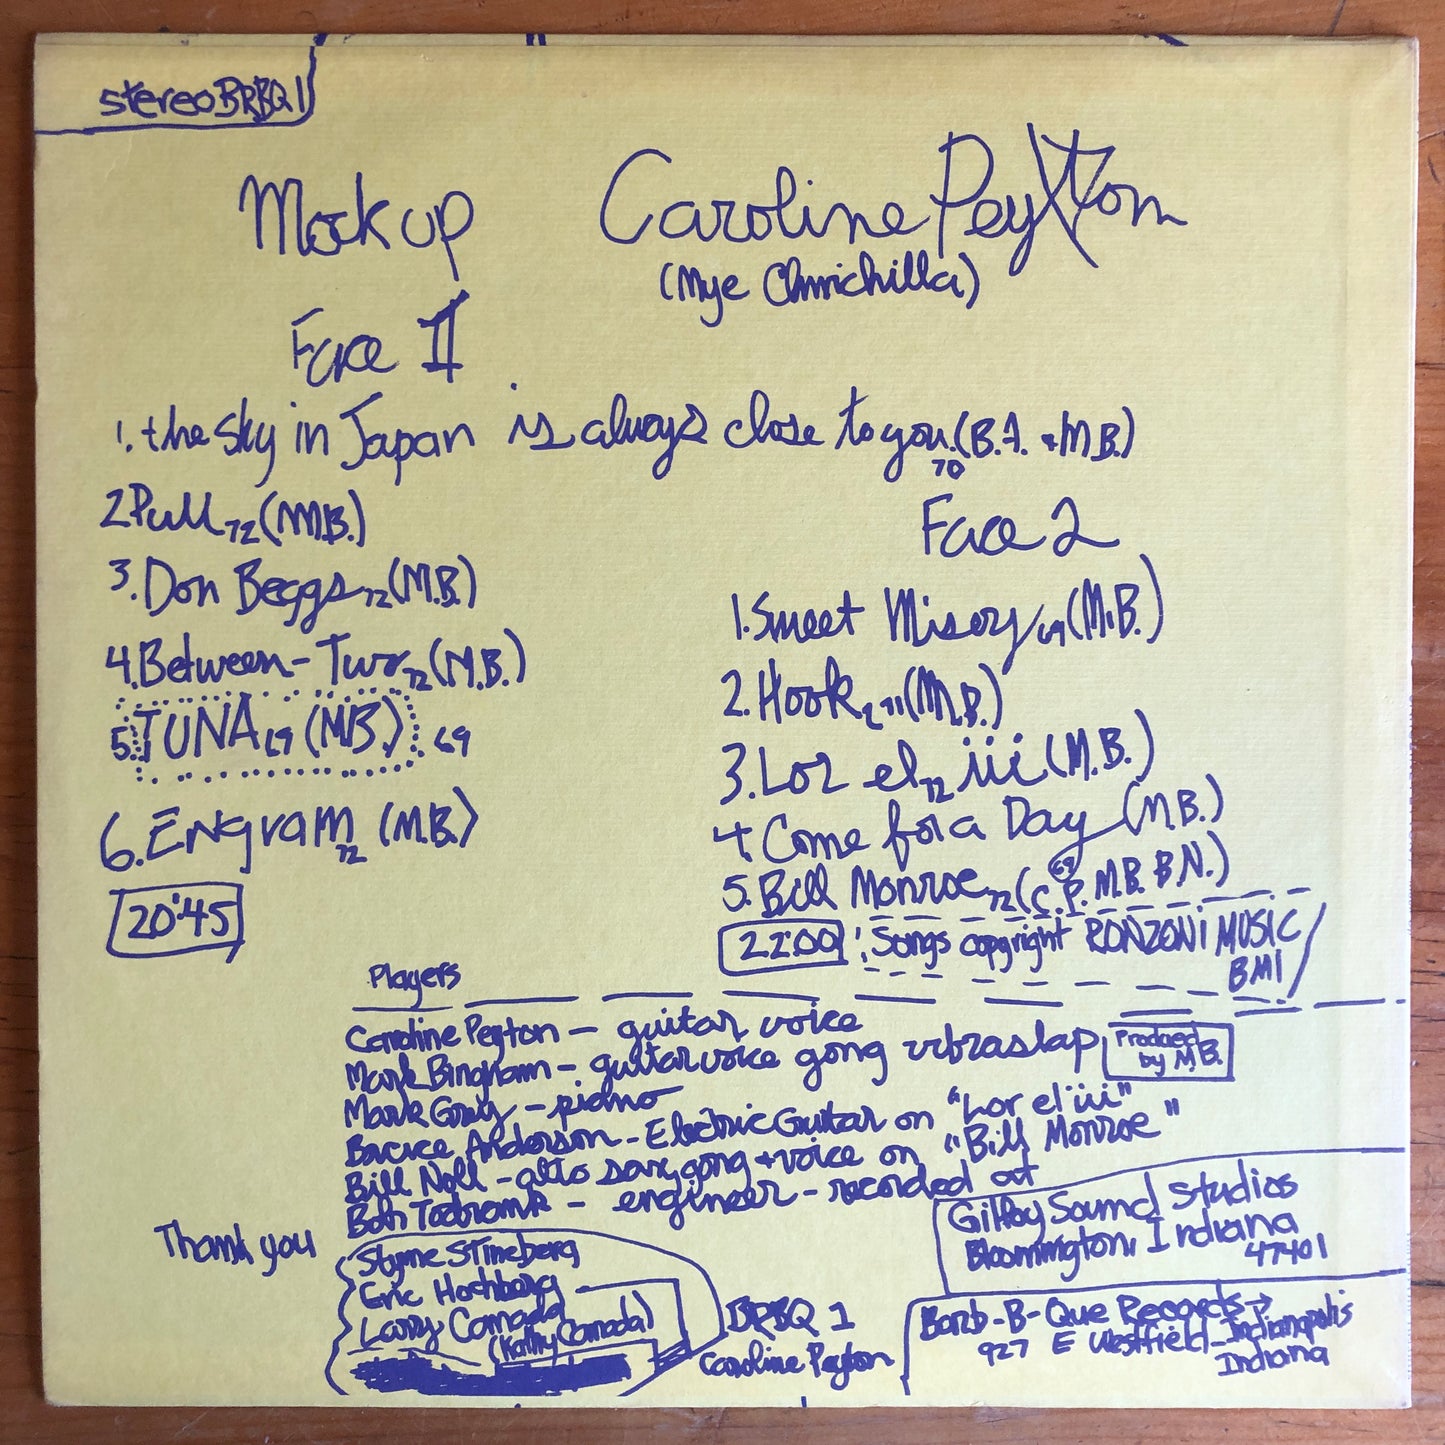 stereo BRBQ 1
Mock up
Caroline Peyton
(Nye Chinchilla)
Face II
1. the sky in Japan is always close to you. 70 (B.A. + M.B.)
2 Pull 72 (M.B.)
3. Don Beggs 72 (M.B.)
4. Between-Two 72 (M.B.)
5. TUNA 69 (M.B.) 69
6. Engram 72 (M.B.)
20:45
Face 2
1. Sweet Misery 69 (M.B.)
2. Hook 71 (M.B.)
3. Lor el iii 72 (M.B.)
4 Come for a Day (M.B.)
5. Bill Monroe 72 (C.P. M.B. B.N.)
22:00 Songs copyright RONZONI MUSIC
BMI
Players
Caroline Peyton - guitar voice
Mark Bingham - guitar voice gong vibraslap
Produced
by M.B.
Mark Gray - piano
Bruce Anderson - Electric Guitar on "Lor el iii"
Bill Noll - alto sax, gong + voice on "Bill Monroe"
Bob - engineer - recorded at
Gilfoy Sound Studios
Bloomington, Indiana
47401
Thank you
Stineberg
Eric Hochberg
Larry Canada
(Kathy Canada)
BRBQ 1
Caroline Peyton
Barb-B-Que Records →
927 E Westfield Indianapolis
Indiana